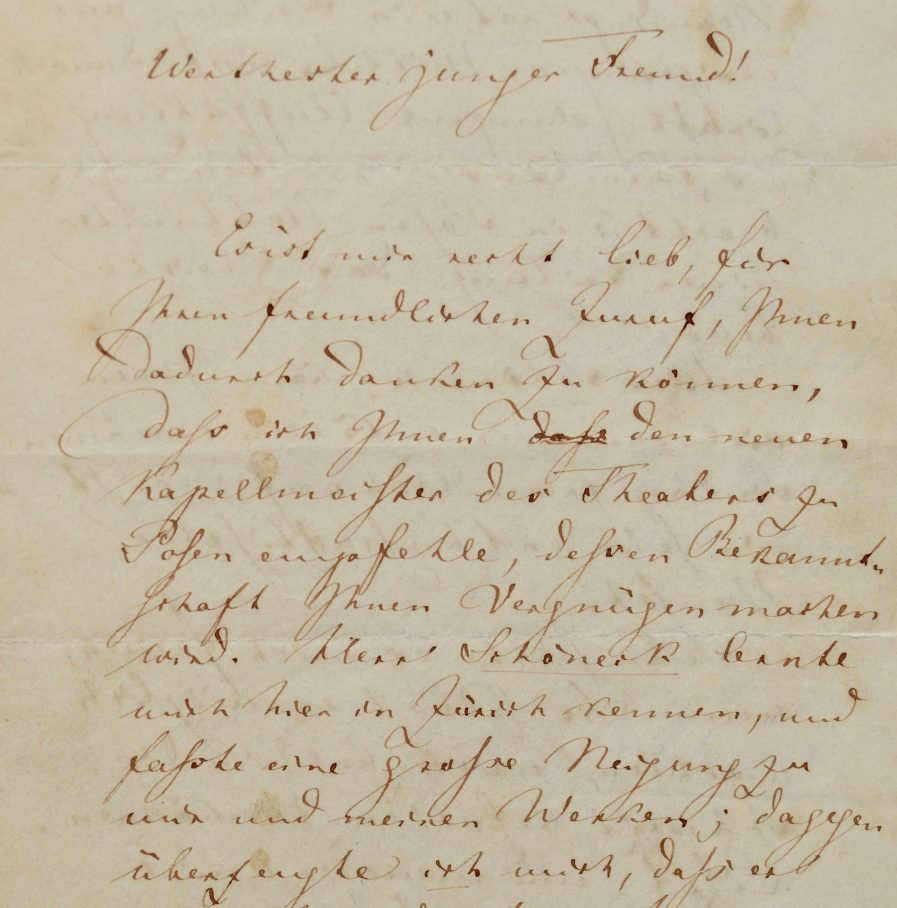 Werthester junger Freund!
Es ist mir recht lieb, für
Ihren freundlichen Zuruf, Ihnen
dadurch danken zu können,
dass ich Ihnen dass den neuen
Kapellmeister des Theaters zu
Posen empfehle, dessen Bekannt-
schaft Ihnen Vergnügen machen
wird. Herr Schöneck lernte
mich hier in Zürich kennen, und
fasste eine grosse Neigung zu
mir und meinen Werken; dagegen
überzeugte ich mich, dass er